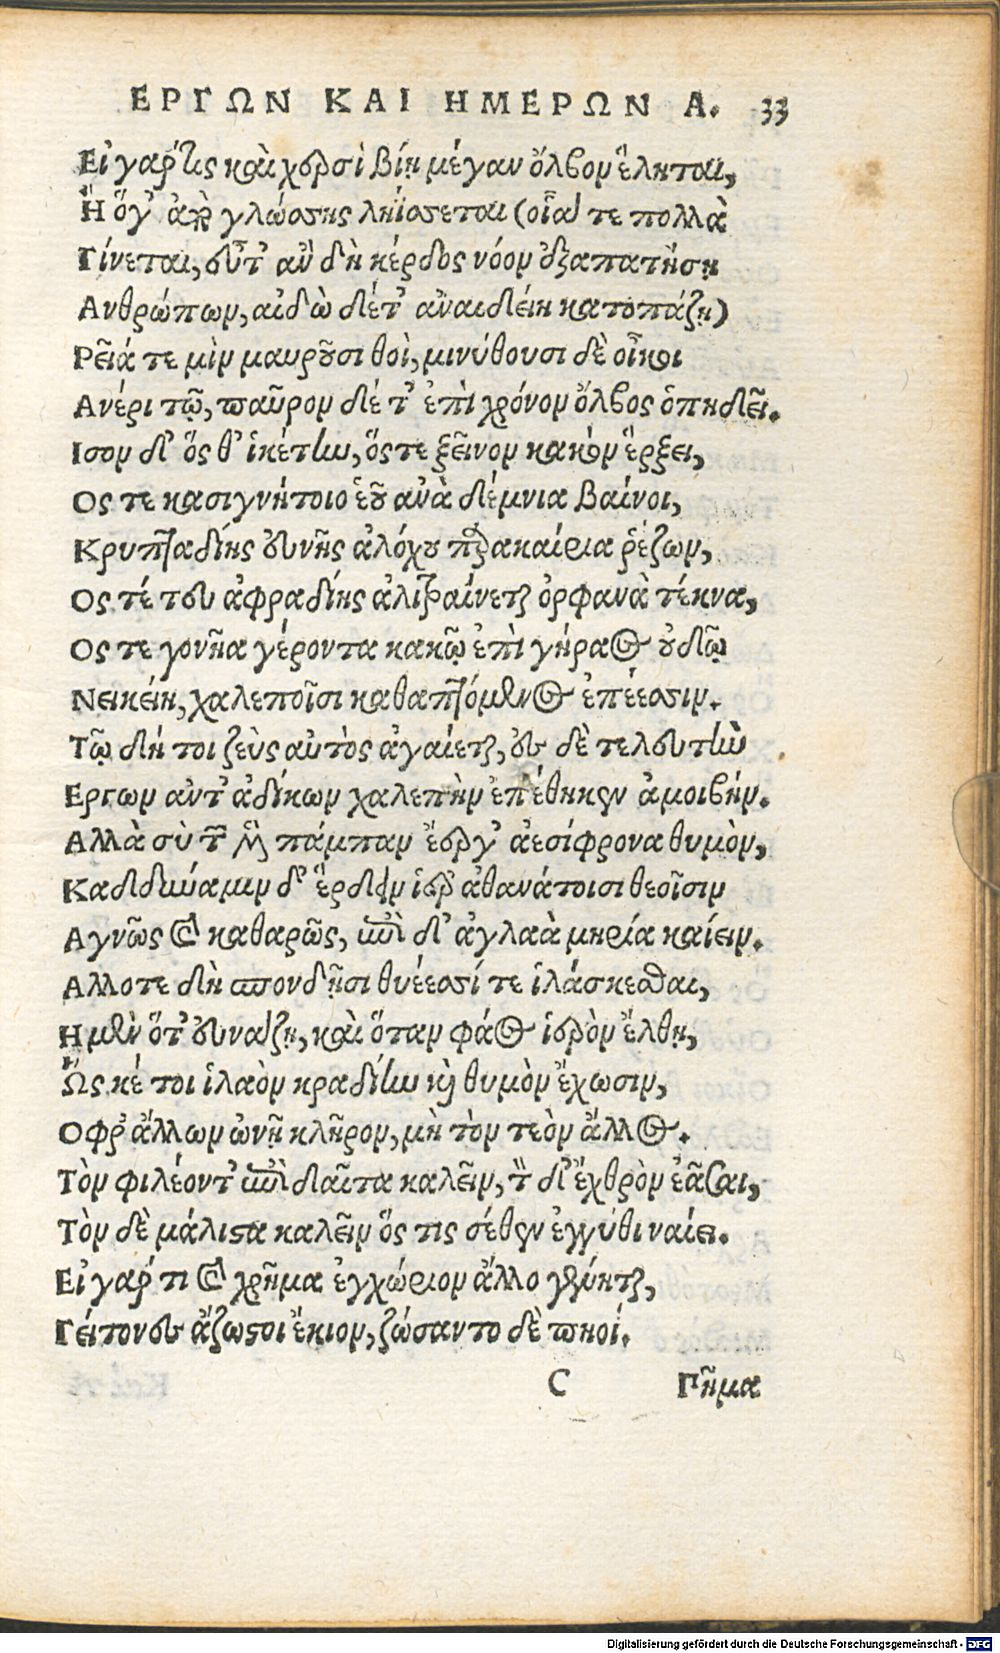 ΕΡΓΩΝ ΚΑΙ ΗΜΕΡΩΝ Α. 33
Εἰ γάρ τις καὶ χερσὶ βίῃ μέγαν ὄλβον ἕληται,
Ἢ ὅγ' ἀπὸ γλώσσης ληΐσσεται (οἷα τε πολλὰ
Γίνεται, εὖτ' ἂν δὴ κέρδος νόον ἐξαπατήσῃ
Ανθρώπων, αἰδὼ δέ τ' ἀναιδείη κατοπάζῃ)
Ρεῖά τε μὶν μαυροῦσι θοὶ, μινύθουσι δὲ οἶκοι
Ανέρι τῷ, παῦρον δέ τ' ἐπὶ χρόνον ὄλβος ὀπηδεῖ.
Ισον δ' ὅς θ' ἱκέτην, ὅς τε ξεῖνον κακὸν ἕρξει,
Ος τε κασιγνήτοιο ἑοῦ ἀνὰ δέμνια βαίνοι,
Κρυπταδίης εὐνῆς ἀλόχου παρακαίρια ῥέζων,
Ος τέ τευ ἀφραδίης ἀλιταίνεται ὀρφανὰ τέκνα,
Ος τε γονῆα γέροντα κακῷ ἐπὶ γήραος οὐδῷ
Νεικείη, χαλεποῖσι καθαπτόμενος ἐπέεσσιν.
Τῷ δή τοι ζεὺς αὐτὸς ἀγαίεται, ἐς δὲ τελευτὴν
Εργων ἀντ' ἀδίκων χαλεπὴν ἐπέθηκεν ἀμοιβήν.
Αλλὰ σὺ τῶν μὲν πάμπαν ἔεργ' ἀεσίφρονα θυμὸν,
Καδδύναμιν δ' ἕρδειν ἱερ' ἀθανάτοισι θεοῖσιν
Αγνῶς καὶ καθαρῶς, ἐπὶ δ' ἀγλαὰ μηρία καίειν.
Αλλοτε δὴ σπονδῇσι θυέεσσί τε ἱλάσκεσθαι,
Η μὲν ὅτ' εὐνάζῃ, καὶ ὅταν φάος ἱερὸν ἔλθῃ,
Ὥς κέ τοι ἱλαὸν κραδίην καὶ θυμὸν ἔχωσιν,
Οφρ' ἄλλων ὠνῇ κλῆρον, μὴ τὸν τεὸν ἄλλος.
Τὸν φιλέοντ' ἐπὶ δαῖτα καλεῖν, τὸν δ' ἔχθρὸν ἐᾶσαι,
Τὸν δὲ μάλιστα καλεῖν ὅς τις σέθεν ἐγγύθι ναίει.
Εἰ γάρ τι καὶ χρῆμα ἐγχώριον ἄλλο γένηται,
Γείτονες ἄζωστοι ἔκιον, ζώσαντο δὲ πηοί.
C Πῆμα
Digitalisierung gefördert durch die Deutsche Forschungsgemeinschaft - DFG